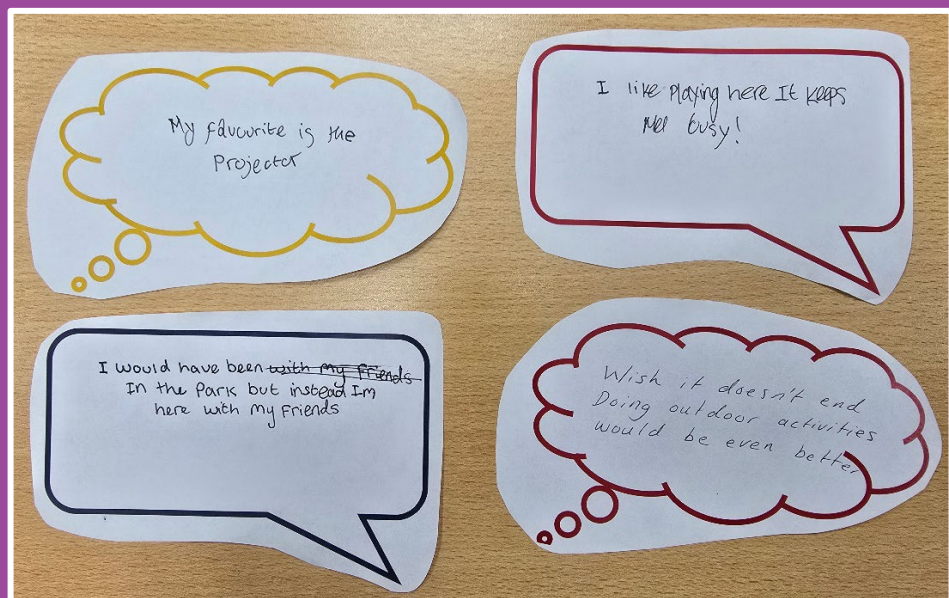 My favourite is the
Projector
I like Playing here It keeps
me busy!
I would have been with my Friends
In the Park but instead I'm
here with my Friends
Wish it doesn't end
Doing outdoor activities
would be even better